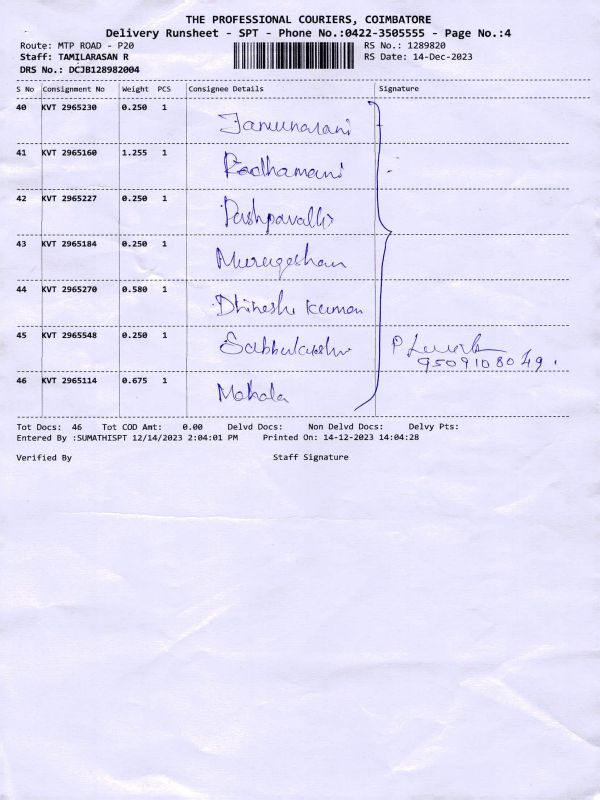 THE PROFESSIONAL COURIERS, COIMBATORE
Delivery Runsheet - SPT - Phone No.:0422-3505555 - Page No.:4
Route: MTP ROAD - P20 RS No.: 1289820
Staff: TAMILARASAN R RS Date: 14-Dec-2023
DRS No.: DCJB128982004
S No Consignment No Weight PCS Consignee Details Signature
40 KVT 2965230 0.250 1
41 KVT 2965160 1.255 1 Radhamani
42 KVT 2965227 0.250 1
43 KVT 2965184 0.250 1 Murugeshan
44 KVT 2965270 0.580 1 Dhinesh kumar
45 KVT 2965548 0.250 1
9509108049.
46 KVT 2965114 0.675 1 Mahala
Tot Docs: 46 Tot COD Amt: 0.00 Delvd Docs: Non Delvd Docs: Delvy Pts:
Entered By :SUMATHISPT 12/14/2023 2:04:01 PM Printed On: 14-12-2023 14:04:28
Verified By Staff Signature